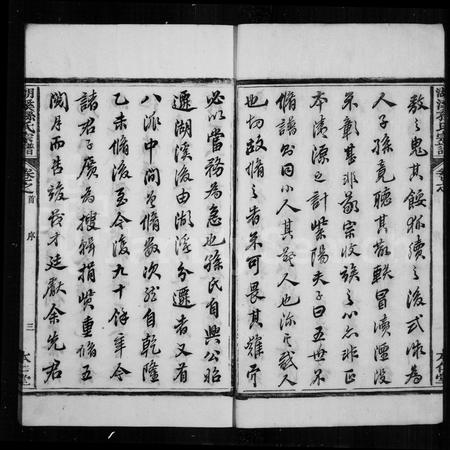 敖之鬼其餒孫續之後式微為
人子孫竟聽其散軼冒濆湮沒
不彰甚非敬宗收族之心亦非正
本清源之計紫陽夫子曰五世不
脩譜為小人其嚴人也深哉人
也切故脩之者不可畏其難而
必以當務為急也孫氏自興公昭
遷湖溪後由湖溪分遷者又有
八派中間重脩數次然自乾隆
乙未脩後至今復九十餘年今
諸君子廣為搜輯捐貲重脩五
閱月而告竣於才廷獻余先君
湖溪孫氏宗譜
卷之首
序
三
本仁堂